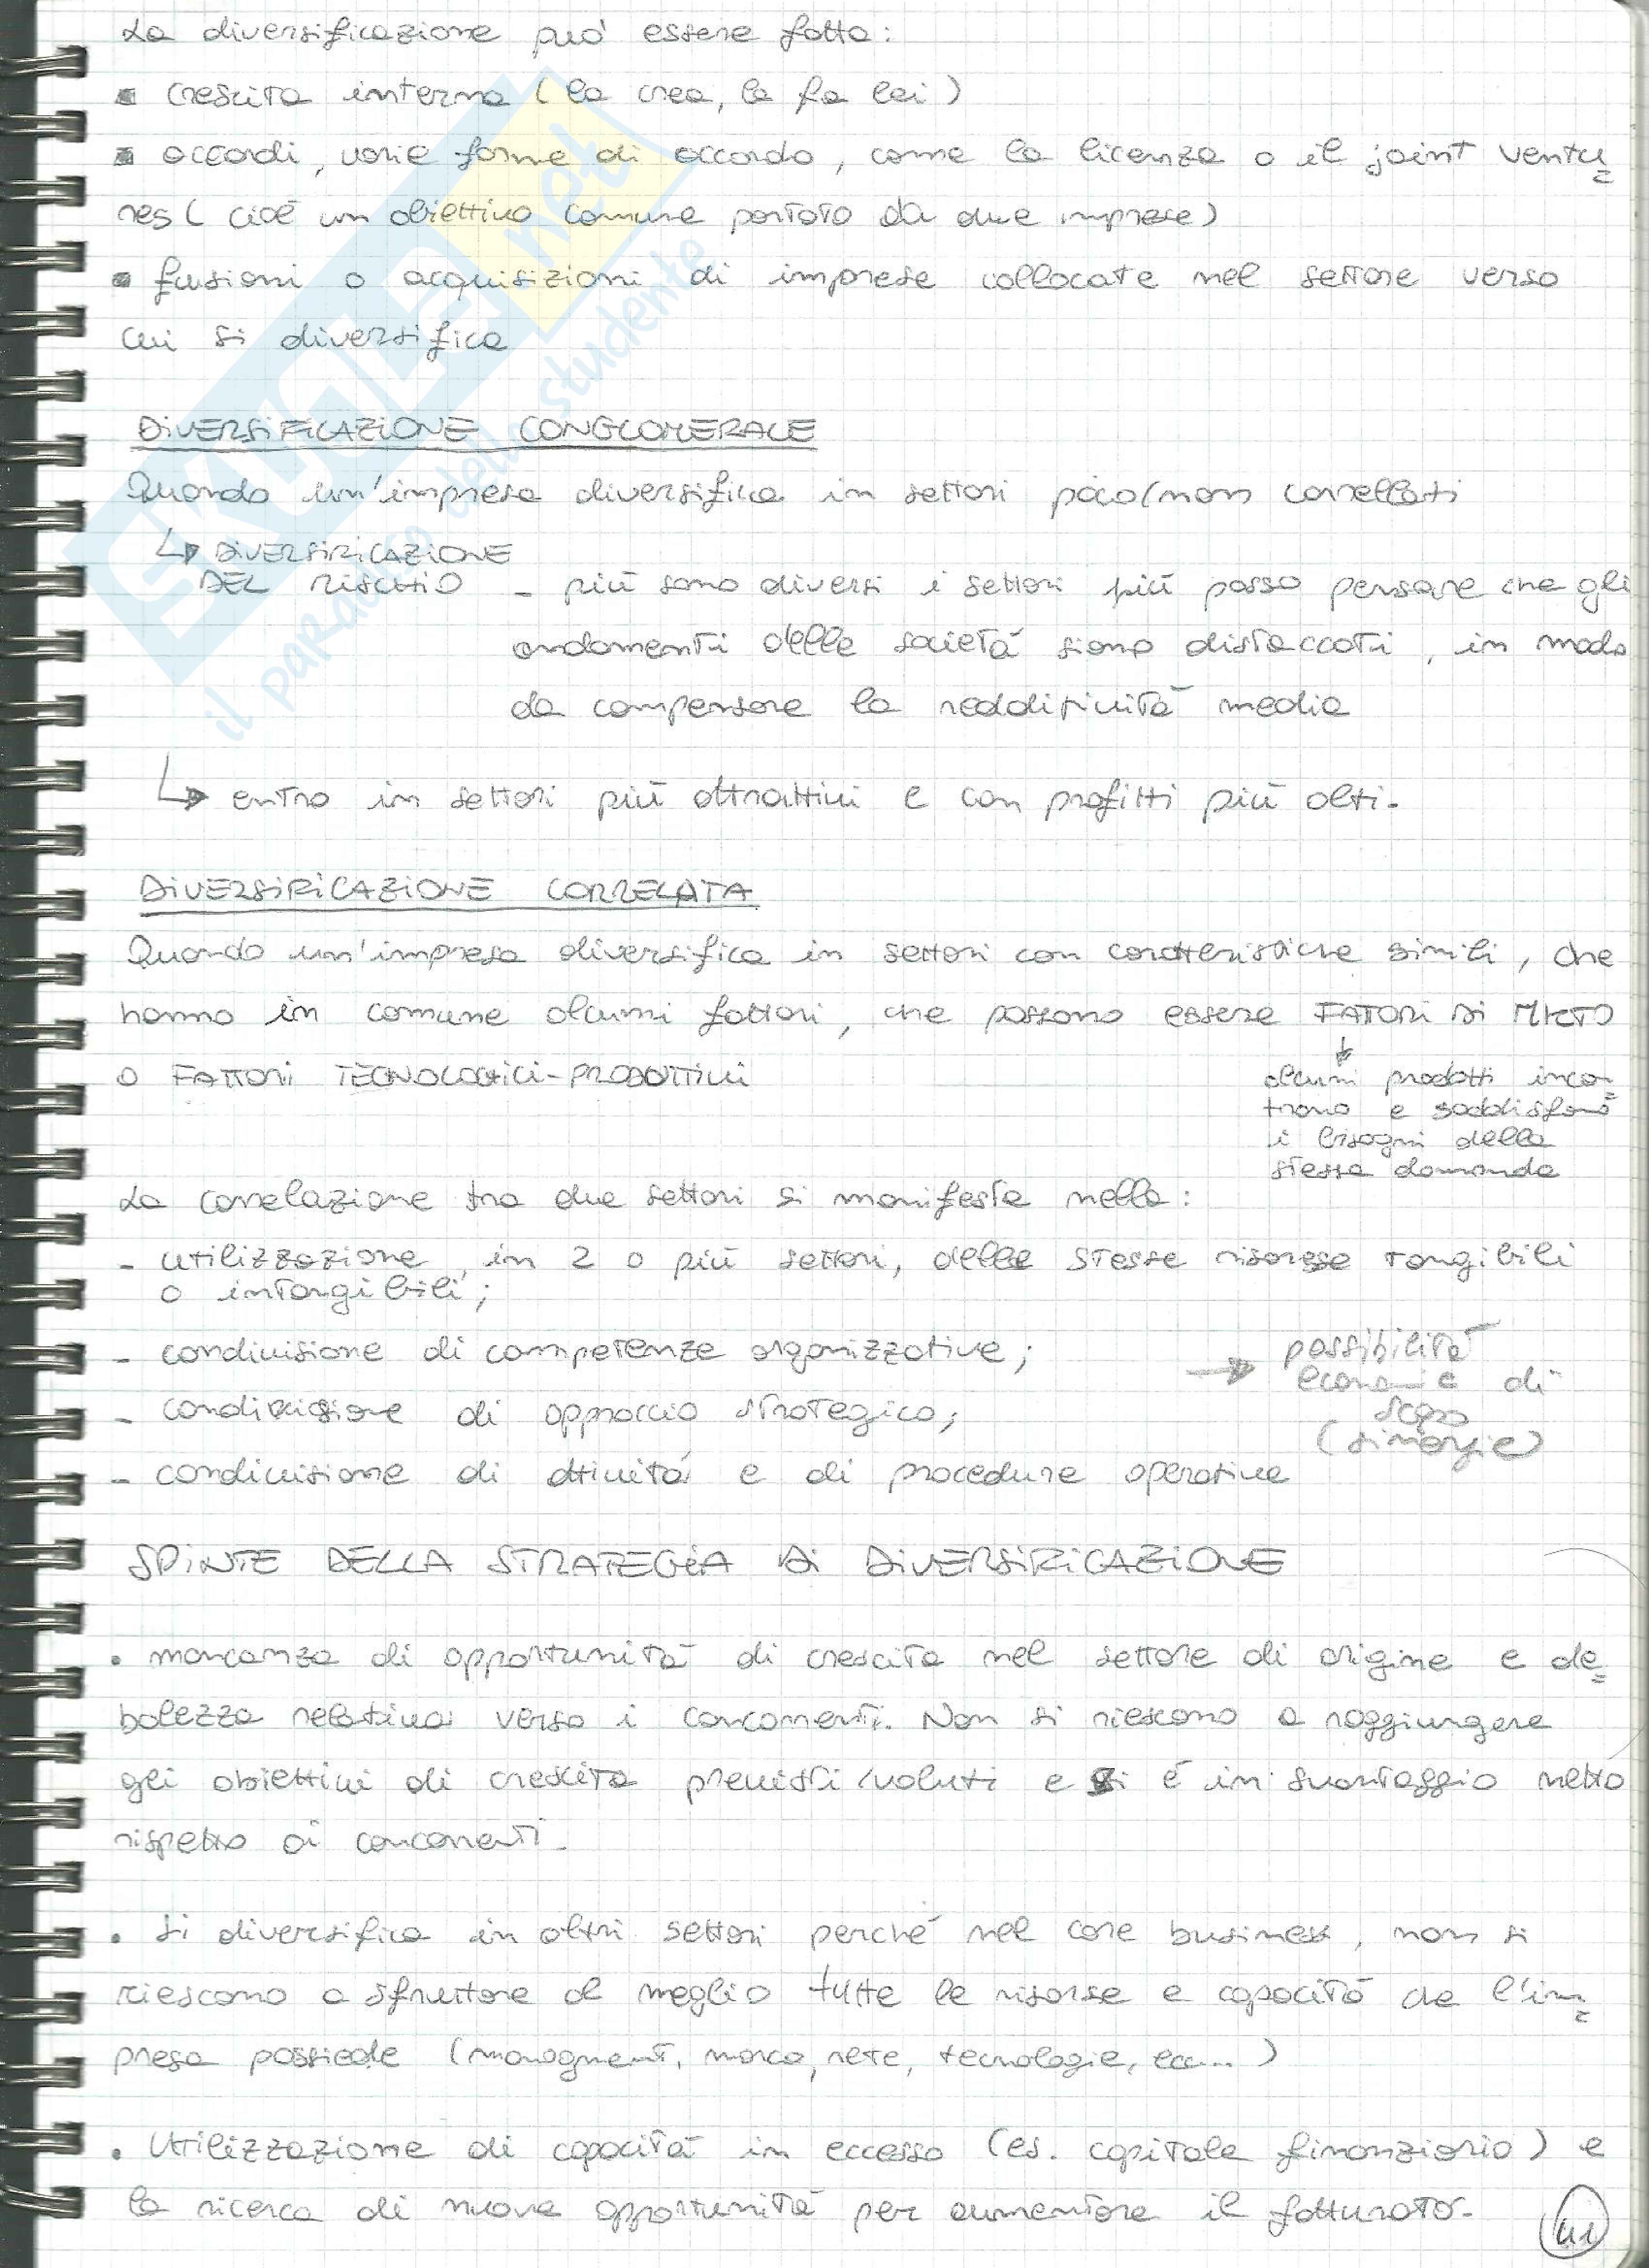 La diversificazione può essere fatta:
▪ crescita interna (la crea, la fa lei)
▪ accordi, varie forme di accordo, come la licenza o il joint ventu=
res (cioè un obiettivo comune portato da due imprese)
▪ fusioni o acquisizioni di imprese collocate nel settore verso
cui si diversifica
DIVERSIFICAZIONE CONGLOMERALE
Quando un'impresa diversifica in settori poco/non correlati
↳ DIVERSIFICAZIONE
DEL RISCHIO - più sono diversi i settori più posso pensare che gli
andamenti delle società siano distaccati, in modo
da compensare la redditività media
↳ entro in settori più attrattivi e con profitti più alti.
DIVERSIFICAZIONE CORRELATA
Quando un'impresa diversifica in settori con caratteristiche simili, che
hanno in comune alcuni fattori, che possono essere FATTORI DI MKTO
o FATTORI TECNOLOGICI-PRODUTTIVI
↓
alcuni prodotti inco=
trano e soddisfano
i bisogni della
stessa domanda
La correlazione tra due settori si manifesta nella:
- utilizzazione, in 2 o più settori, delle stesse risorse tangibili
o intangibili;
- condivisione di competenze organizzative;
- condivisione di approccio strategico;
- condivisione di attività e di procedure operative
→ possibilità
economie di
scopo
(sinergie)
SPINTE DELLA STRATEGIA DI DIVERSIFICAZIONE
• mancanza di opportunità di crescita nel settore di origine e de=
bolezza relativa verso i concorrenti. Non si riescono a raggiungere
gli obiettivi di crescita previsti/voluti e si è in svantaggio netto
rispetto ai concorrenti.
• Si diversifica in altri settori perché nel core business, non si
riescono a sfruttare al meglio tutte le risorse e capacità che l'im=
presa possiede (managment, marca, rete, tecnologie, ecc...)
• Utilizzazione di capacità in eccesso (es. capitale finanziario) e
la ricerca di nuove opportunità per aumentare il fatturato.
41
SKUOLA.net
il paradiso dello studente